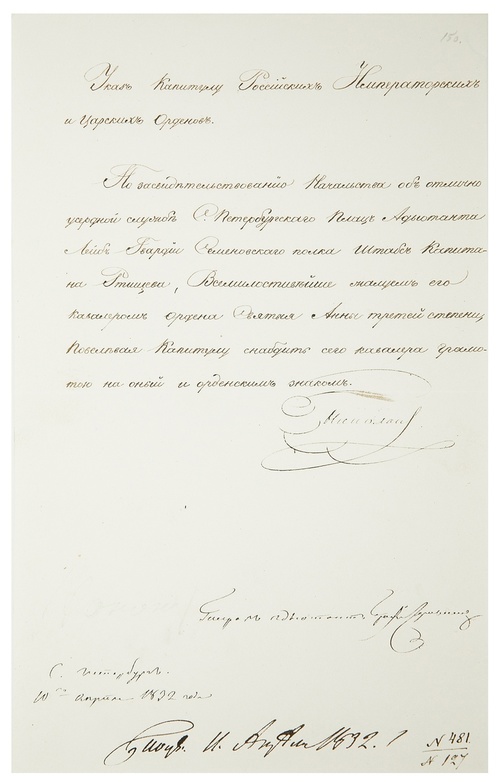 150.
Указъ Капитулу Россійскихъ Императорскихъ
и Царскихъ Орденовъ.
По засвидѣтельствованію Начальства объ отлично
усердной службѣ С. Петербургскаго Плацъ Адъютанта
Лейбъ Гвардіи Семеновскаго полка Штабсъ Капита-
на Ртищева, Всемилостивѣйше жалуемъ его
кавалеромъ ордена Святыя Анны третей степени;
Повелѣвая Капитулу снабдить сего кавалера грамо-
тою на оный и орденскимъ знакомъ.
Николай
Генералъ адъютантъ Графъ
С. Петербургъ.
10го апрѣля 1832 года
Получ. 11. Апрѣля 1832.
N 481
N 127